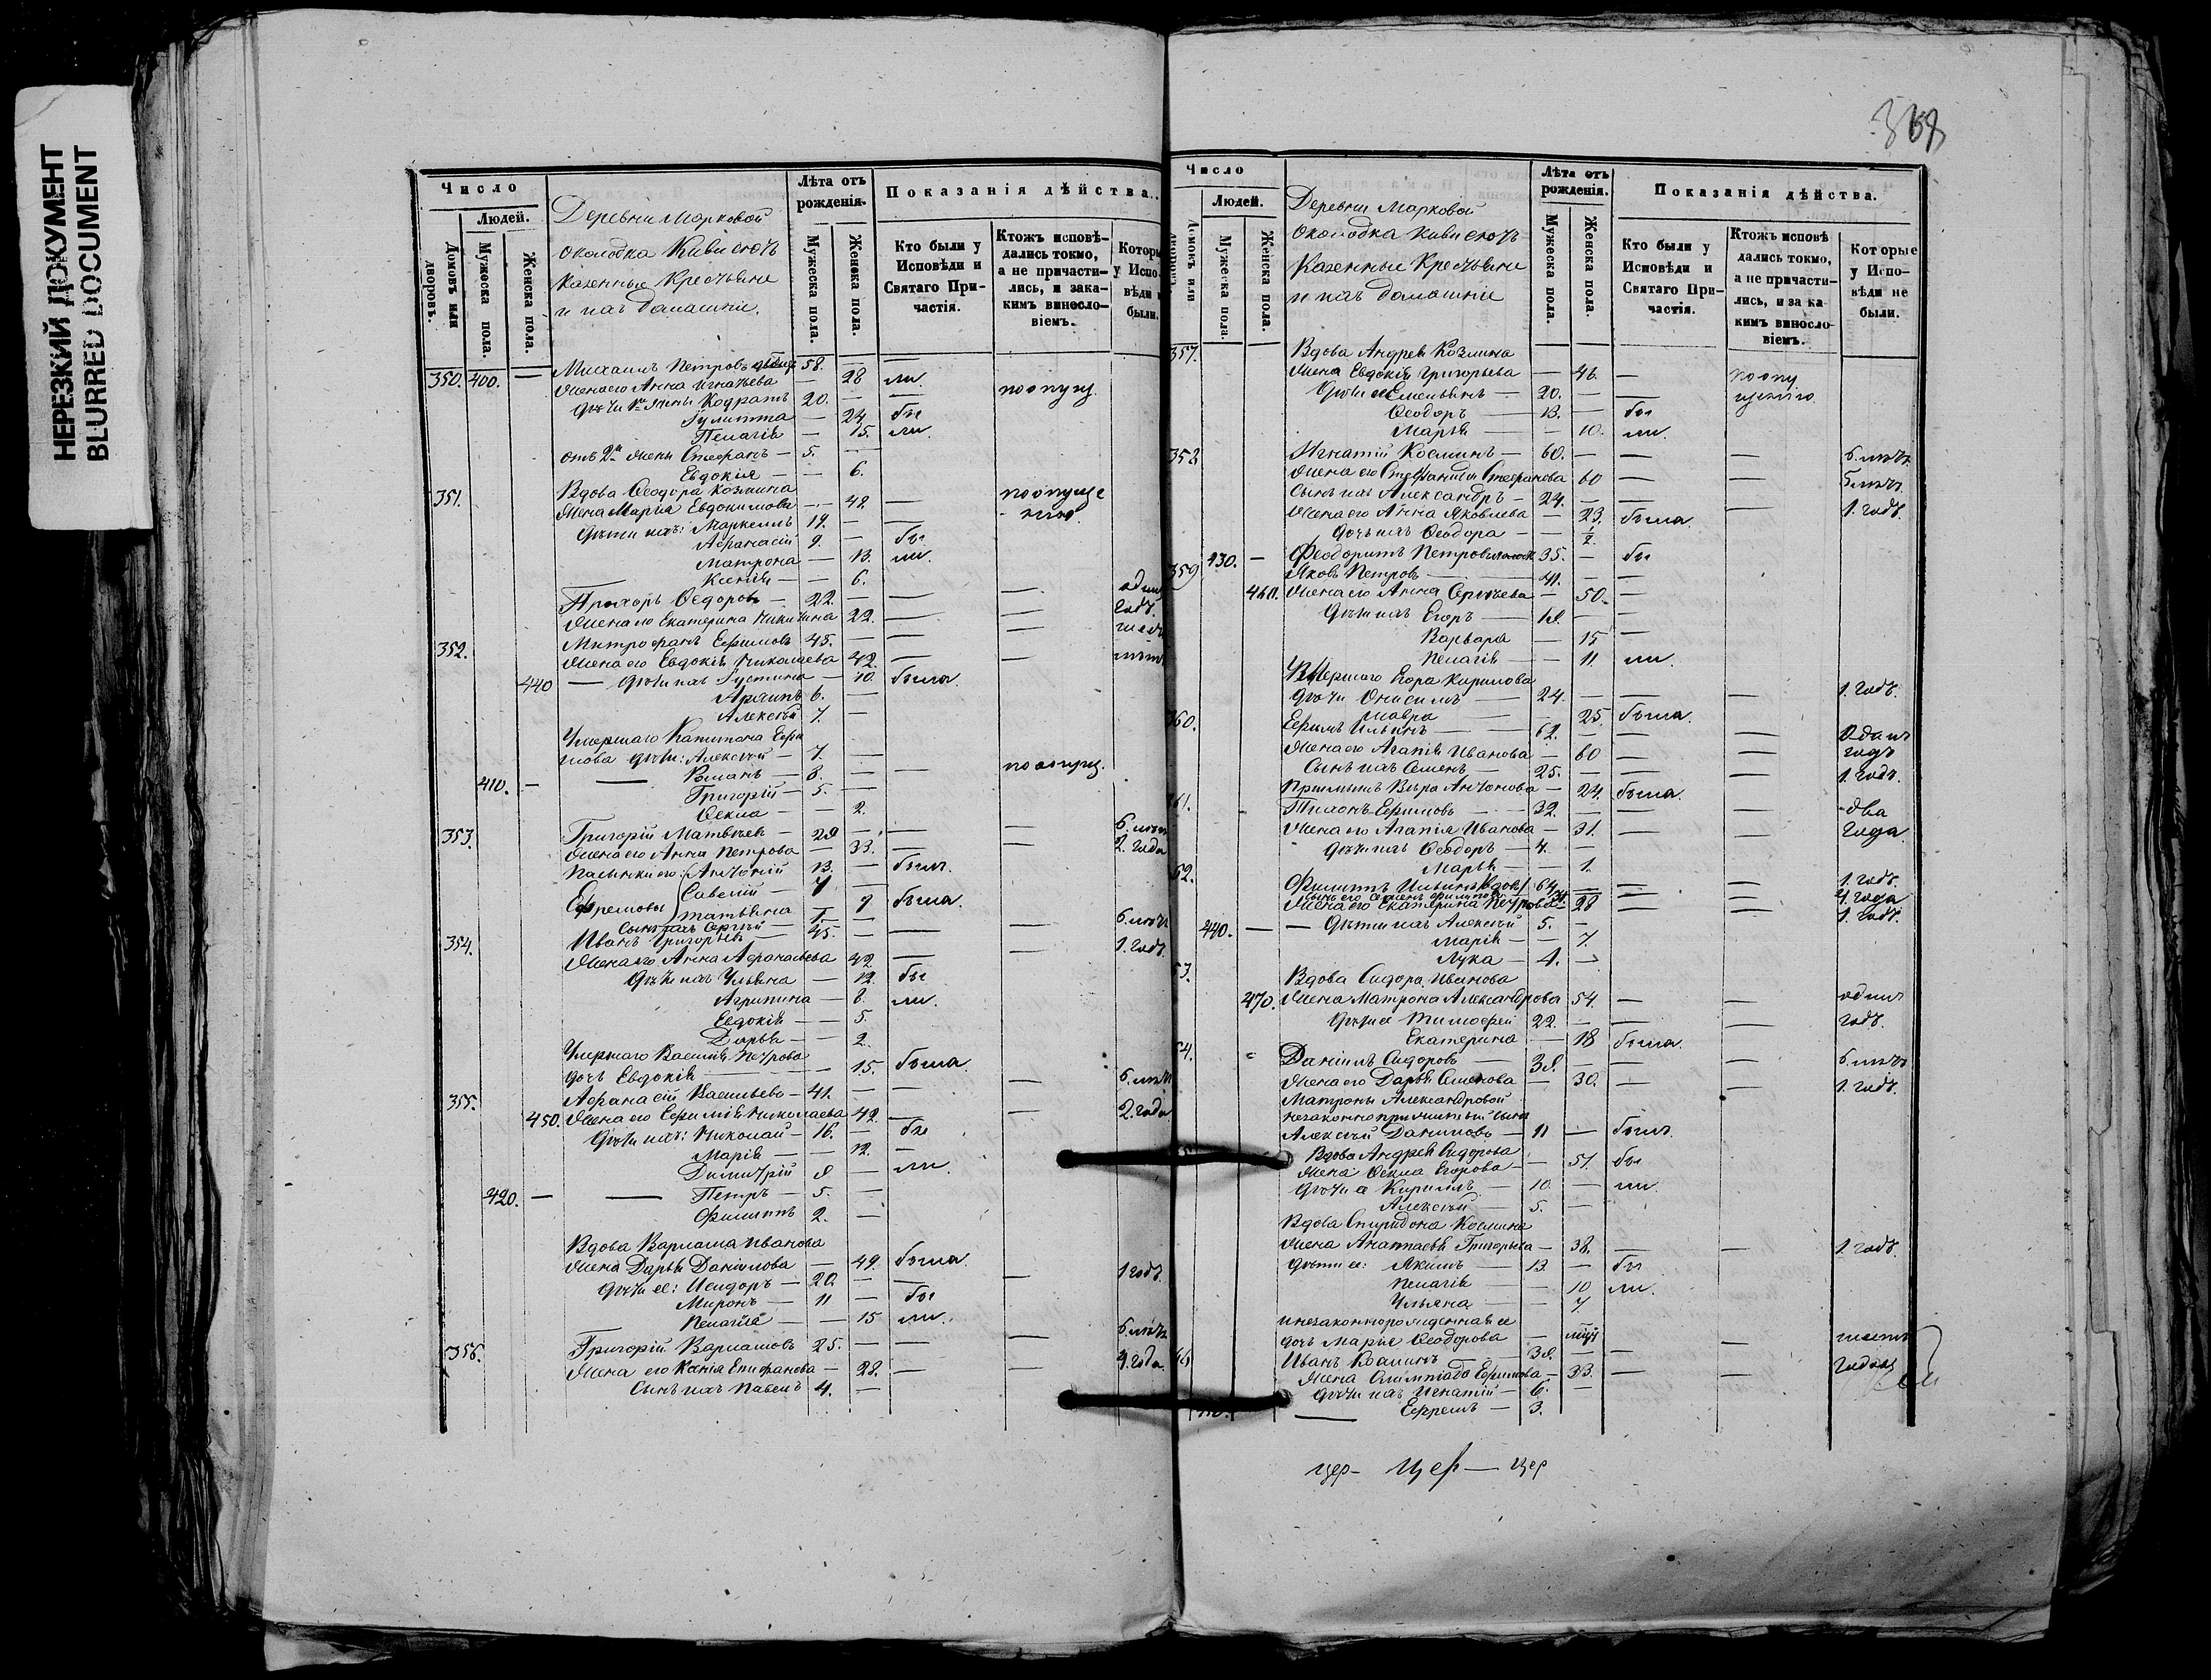 НЕРЕЗКИЙ ДОКУМЕНТ
BLURRED DOCUMENT
Число
Людей.
Домовъ или дворовъ.
Мужеска пола.
Женска пола.
Деревни Марковой
околодка
Казенные Крестьяне
и ихъ домашніе.
Лѣта отъ рожденія.
Мужеска пола.
Женска пола.
Показанія дѣйства.
Кто были у Исповѣди и Святаго Причастія.
Ктожъ исповѣдались токмо, а не причастились, и закакимъ винословіемъ.
Которы у Испо- вѣди были.
350. 400. — Михаилъ Петровъ 58. — —
Жена его Анна Игнатьева — 28 ли.
Дѣти 1й жены Кодратъ 20. — — по опущ.
Іулитта — 24 бы
Пелагія — 15. ли.
отъ 2й жены Стефанъ — 5. —
Евдокія — — 6.
351. Вдова Ѳеодора Козмина
жена Марѳа Евдокимова — 42. — по опуще
Дѣти ихъ: Маркеллъ 19. — — нію
Аѳанасій 9. — бы
Матрона — 13. ли.
Ксенія — — 6.
Прохоръ Ѳедоровъ — 22. — — — один
Жена его Екатерина Никитина 22. — — годъ.
352. Митрофанъ Ефимовъ 45. — — —
Жена его Евдокія Николаева 42. — —
440 — Дѣти ихъ Іустина — 10. была.
Архипъ 6. —
Алексѣй 7. —
Умершаго Капитона Ефи
мова дѣти: Алексѣй — 7. —
— Романъ — 8. — — по опущ.
410. — Григорій — 5. —
Ѳекла — 2.
353. Григорій Матвѣевъ — 29 — — — 6. лѣтъ
Жена его Анна Петрова — 33. — — 2. года
Пасынки его: Антоній 13. — былъ.
Ефремовы Савелій — 7 —
Татьяна — 9 была.
Сынъ ихъ Сергѣй — 1. —
354. Иванъ Григорьевъ — 45. — — — 6. лѣтъ
Жена его Анна Аѳанасьева 42 — — 1. годъ
Дѣти ихъ Ульяна — 12. бы
Агрипина — 8. ли.
Евдокія — — 5.
Дарья — — 2.
Умершаго Василія Петрова
дочь Евдокія — — 15. была.
355. Аѳанасій Васильевъ — 41. — — — 6. лѣтъ
450. Жена его Ефимія Николаева 42. — — 2. года
Дѣти ихъ: Николай — 16. — бы
Марія — — 12. —
Димитрій 9 — ли.
420. — — Петръ — 5. —
Филиппъ 2. —
Вдова Варлама Иванова
жена Дарья Данилова — 49. была.
Дѣти ее: Исидоръ — 20. — — — 1 годъ.
Миронъ — 11 — бы
Пелагія — — 15 ли.
356. Григорій Варламовъ 25. — — — 6. лѣтъ
Жена его Ксенія Епифанова — 28. — 4. года.
Сынъ ихъ Павелъ 4. —
Число
Людей.
Домовъ или
Мужеска пола.
Женска пола.
Деревни Марковой
околодка
Казенные Крестьяне
и ихъ домашніе
Лѣта отъ рожденія.
Мужеска пола.
Женска пола.
Показанія дѣйства.
Кто были у Исповѣди и Святаго Причастія.
Ктожъ исповѣ дались токмо, а не причастились, и за какимъ винословіемъ.
Которые у Исповѣди не были.
357. Вдова Андрея Козмина
жена Евдокія Григорьева — 46. — по опу
Дѣти ее — 20. — — щенію
Ѳеодоръ — 13. — бы
Марья — — 10. ли.
358 Игнатій Косминъ — 60. — — — 6. лѣтъ
Жена его Стефанида Стефанова 60 — — 5 лѣтъ
Сынъ ихъ Александръ — 24. — — — 1. годъ.
Жена его Анна Яковлева — 23. была.
Дочь ихъ Ѳеодора — — 1/2.
430. — Феодоритъ Петровъ 35. — бы
359 Яковъ Петровъ — 41. — —
460. Жена его Анна Сергѣева — 50. —
Дѣти ихъ Егоръ — 18. — —
Варвара — 15 —
Пелагія — — 11. ли.
Умершаго Егора Кирилова
Дѣти Онисимъ — 24. — — — 1. годъ.
Мавра — — 25. была.
360. Ефимъ Ильинъ — 62. — — — один
Жена его Агапія Иванова — 60 — — годъ
Сынъ ихъ Семенъ — 25. — — — 1. годъ.
Вѣра Антонова — 24. была.
61. Тихонъ Ефимовъ — 32. — — — два
Жена его Агапія Иванова — 31. — — года
Дѣти ихъ Ѳеодоръ — 4. —
Марья — — 1.
62. Филиппъ Ильинъ вдовъ 64 — — — 1. годъ.
Сынъ его Семенъ Филиповъ — — 4 года
Жена его Екатерина Петрова — 28 — — 1. годъ.
440. — — Дѣти ихъ Алексѣй 5. —
Марія — — 7.
Лука — 4. —
63. Вдова Сидора Иванова
470. Жена Матрона Александрова 54. — — один
Дѣти ее Тимоѳей 22. — — — годъ.
Екатерина — 18 была.
64. Даніилъ Сидоровъ — 38. — — — 6. лѣтъ
Жена его Дарья Семенова — 30. — — 1. годъ.
Матроны Александровой
сынъ
Алексѣй Даниловъ — 11 — былъ.
Вдова Андрея Сидорова
жена Ѳекла Егорова — — 51. бы
Дѣти ее Кириллъ — 10. — ли.
Алексѣй — 5. —
Вдова Спиридона Космина
жена Анастасія Григорьева — 38. — — 1. годъ.
Дѣти ее: Якимъ — 13. — бы
Пелагія — — 10 ли.
Ульяна — — 7.
и незаконнорожденная ее
дочь Марья Ѳеодорова —
Иванъ Косминъ — 38. — — — шесть
Жена Олимпіада Ефимова — 33. — — годовъ
Дѣти ихъ Игнатій — 6. —
— Ефремъ — 3.